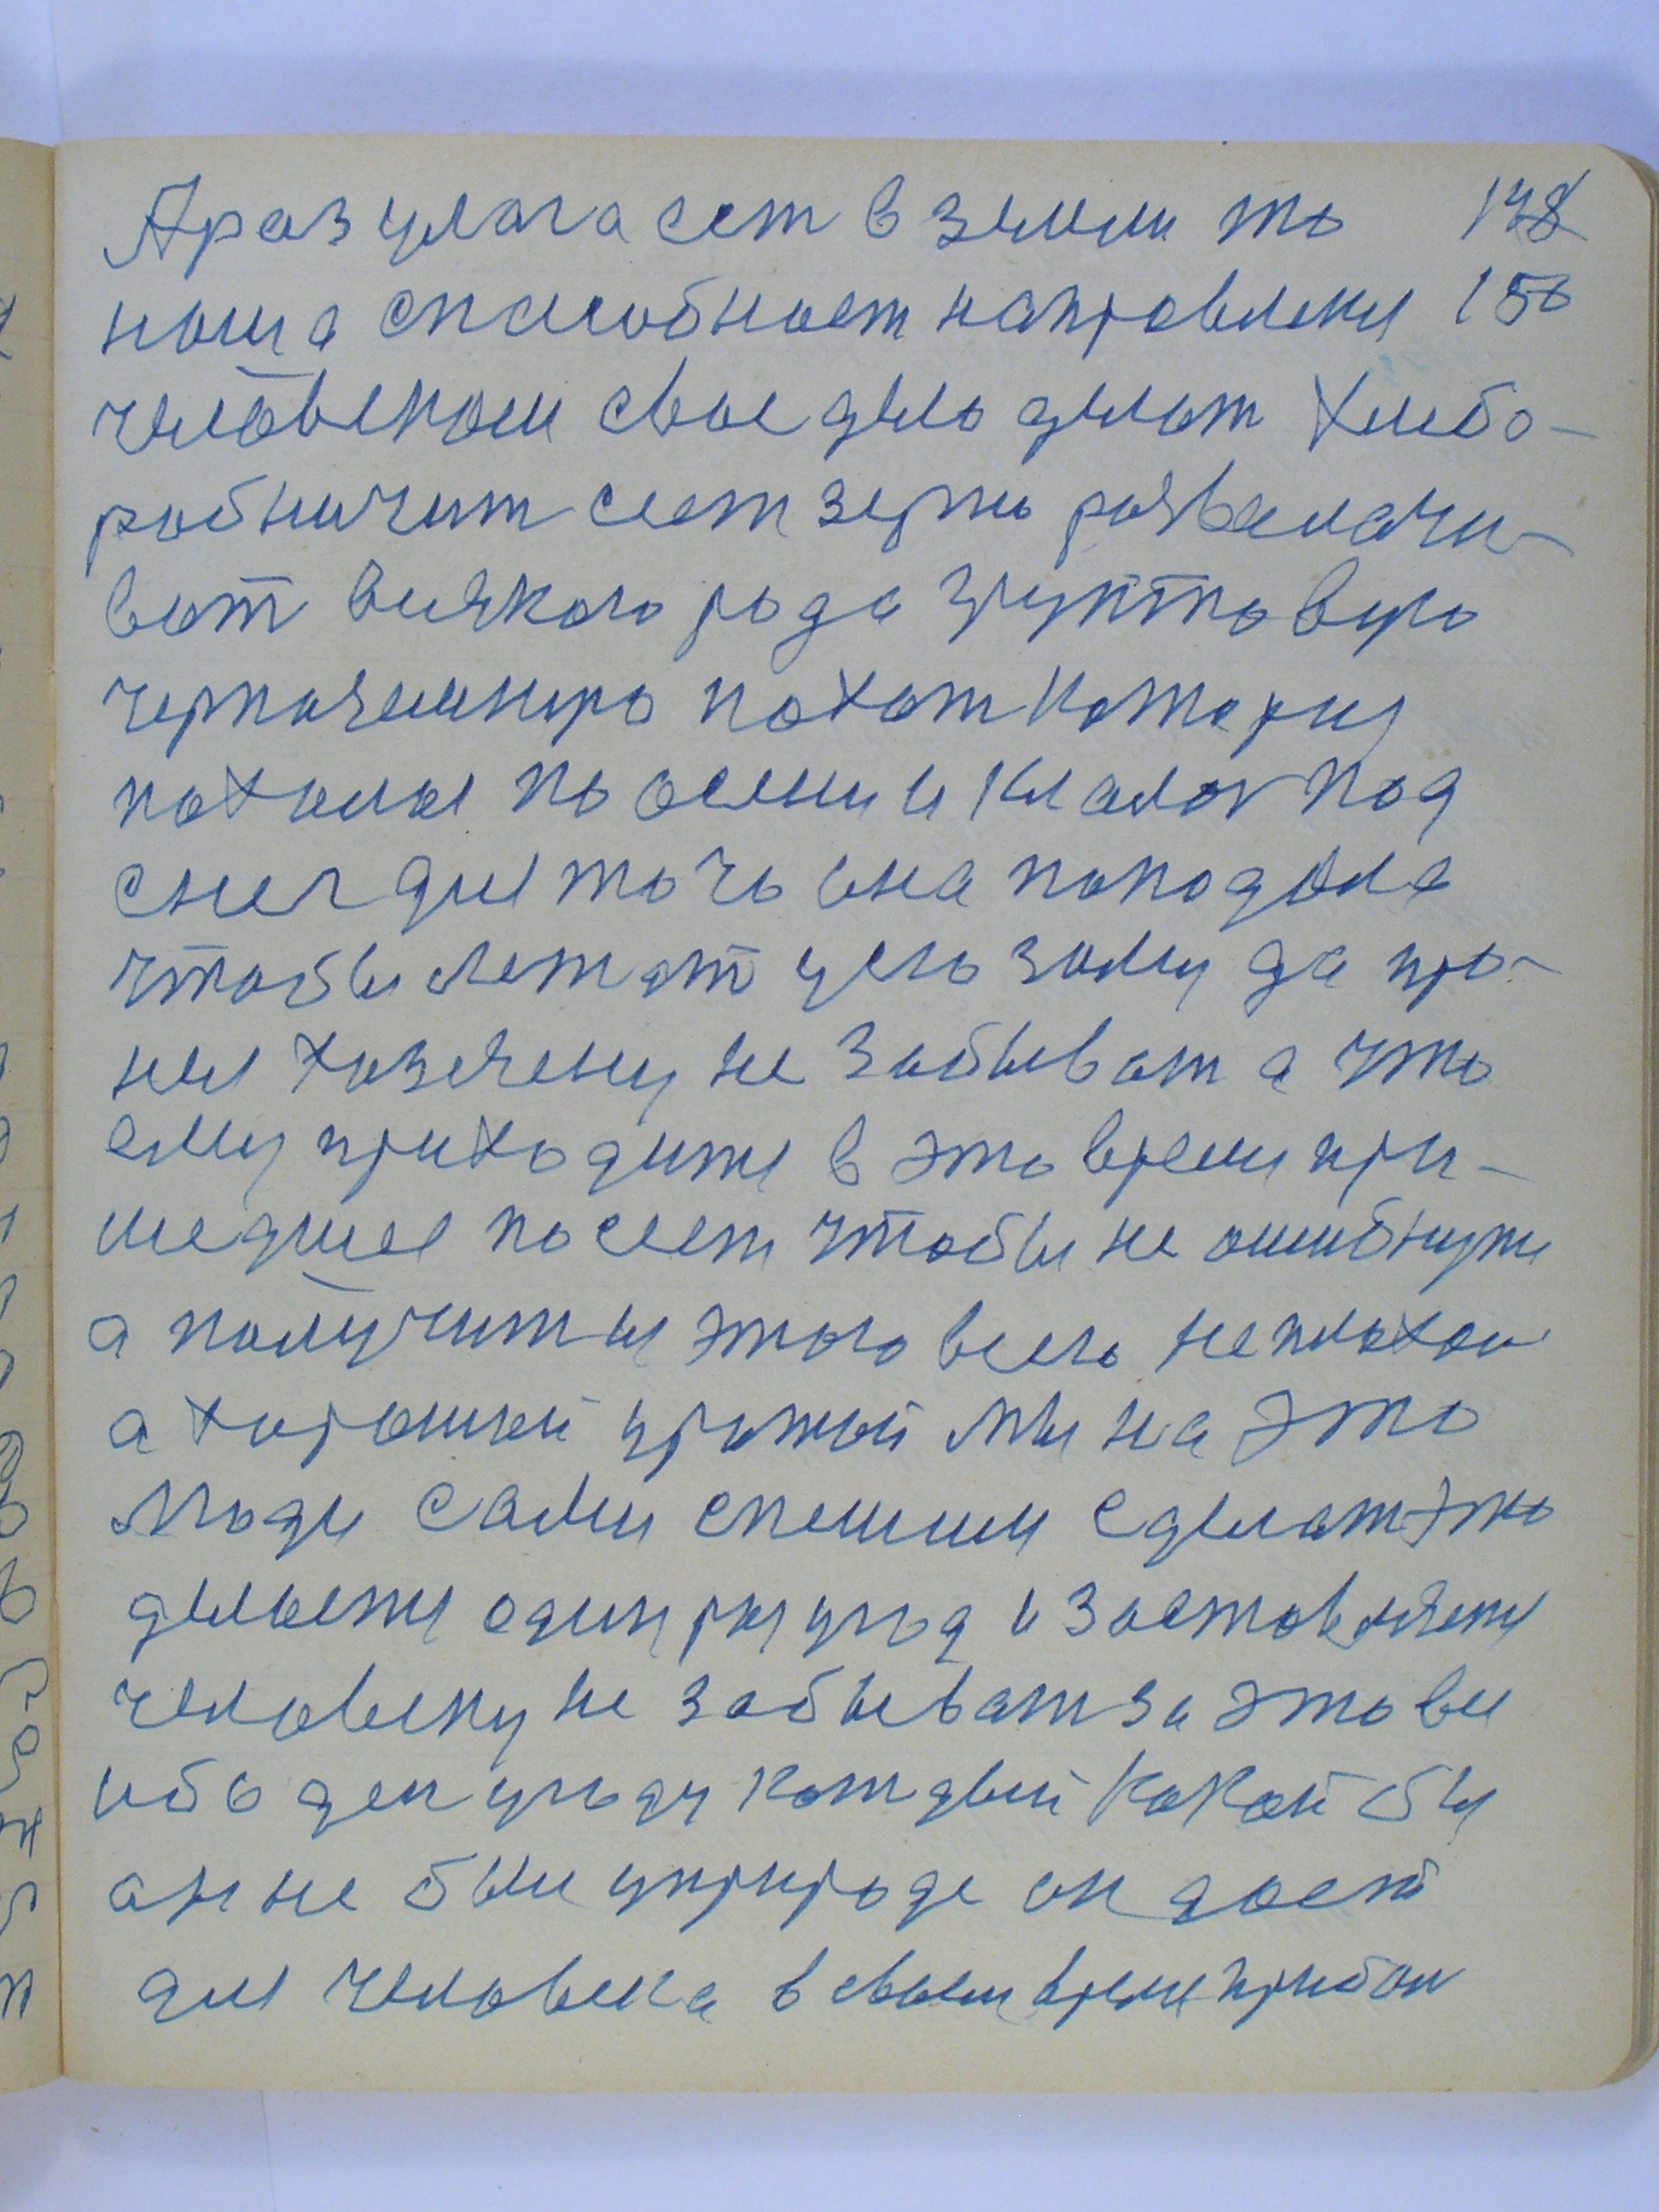 А раз улога сет в земли то 138
ноша способност направлени 150
человеком свое дело делат хлебо-
робничит сеет зерно развалачи-
вот всякого рода грунтовую
черназемную похот которую
похали по осени и клалас под
снег для точо она попадала
чтобы лежат усю зиму да про
нея хозяену не забыват а что
ему приходитя в это время при-
шедшее посеет чтобы не ошибнутя
а получит из этого всего неплохой
а хороший урожай мы на это
люди сами спешим сделат это
делается один раз угод и заставляетя
человеку не забыват за это все
ибо ден угоду каждый какой бы
он не был уприроде он дает
для человека в своем время прибол